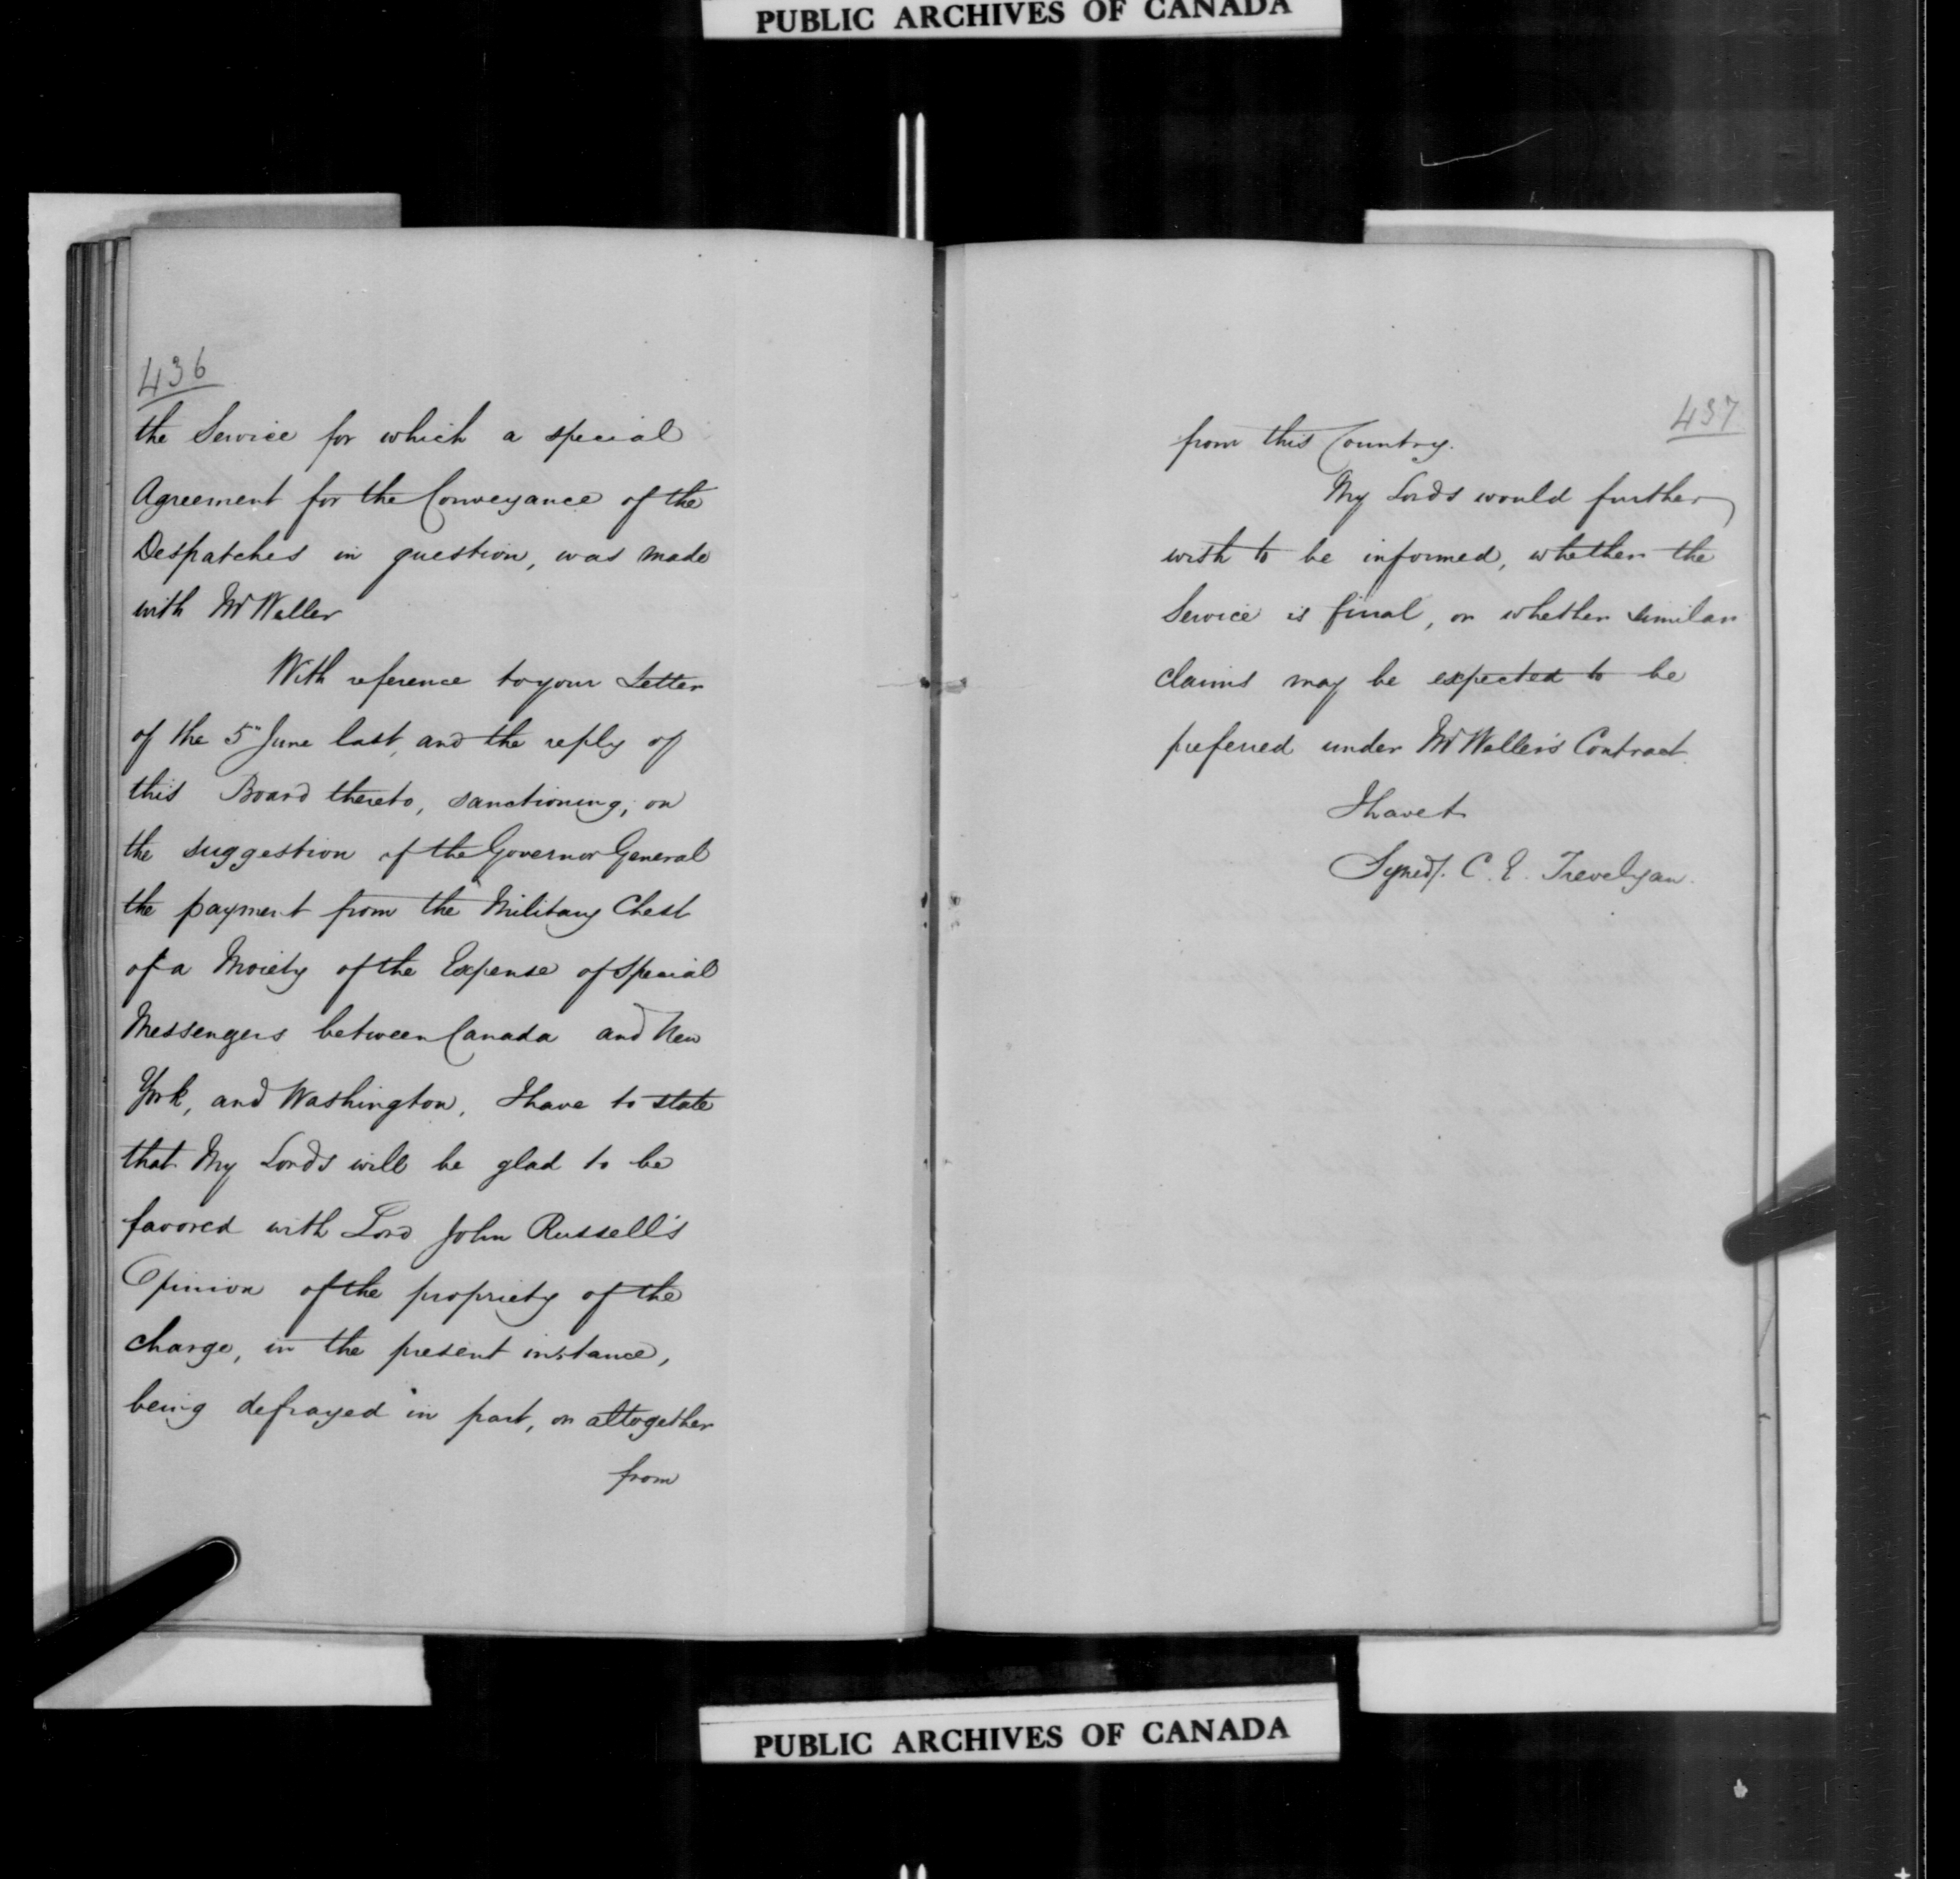 PUBLIC ARCHIVES OF CANADA
436
the Service for which a special
Agreement for the Conveyance of the
Despatches in question, was made
with Mr Waller
With reference to your Letter
of the 5th June last, and the reply of
this Board thereto, sanctioning, on
the suggestion of the Governor General
the payment from the Military Chest
of a Moiety of the Expense of Special
Messengers between Canada and New
York, and Washington, I have to state
that My Lords will be glad to be
favored with Lord John Russell's
Opinion of the propriety of the
charge, in the present instance,
being defrayed in part, or altogether
from
437
from this Country.
My Lords would further
wish to be informed, whether the
Service is final, or whether similar
claims may be expected to be
preferred under Mr Waller's Contract.
I have &
Signed/. C. E. Trevelyan.
PUBLIC ARCHIVES OF CANADA